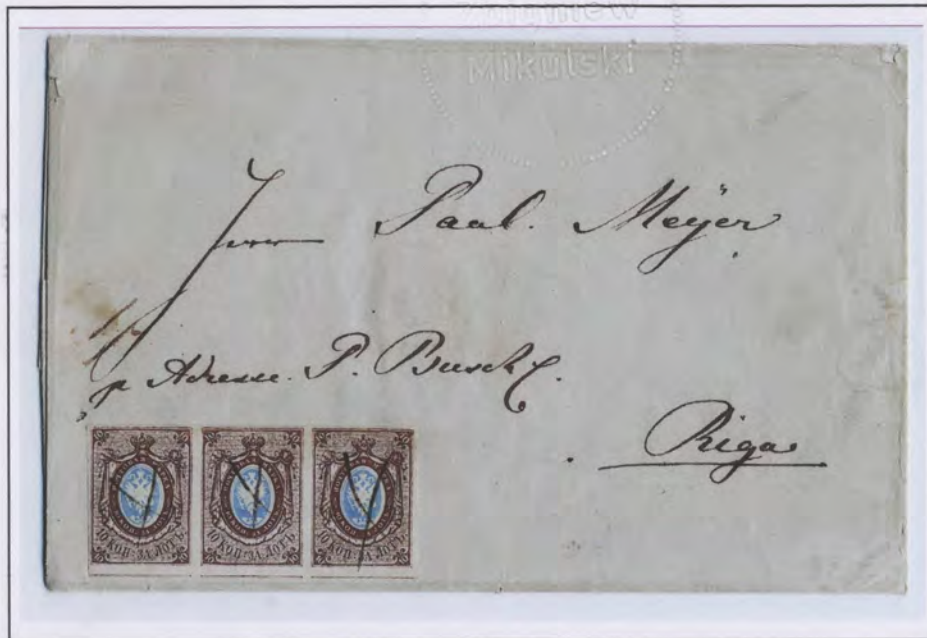 Zbigniew
Mikulski
Herrn Paul. Meÿer
p Adresse. P. Busch
Riga
10 КОП: ЗА ЛОТЪ 10 КОП: ЗА ЛОТЪ 10 КОП: ЗА ЛОТЪ